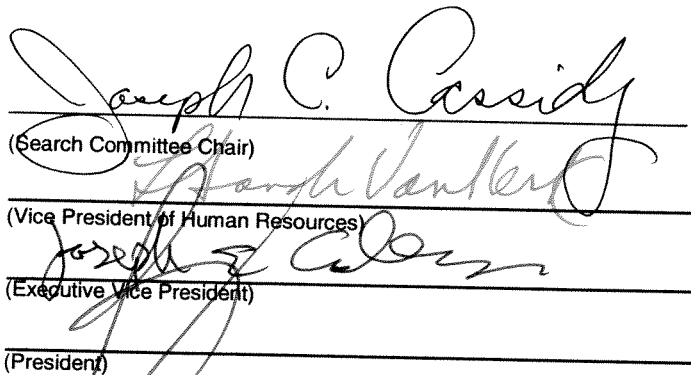 Joseph C. Cassidy
(Search Committee Chair)
(Vice President of Human Resources)
Joseph E
(Executive Vice President)
(President)